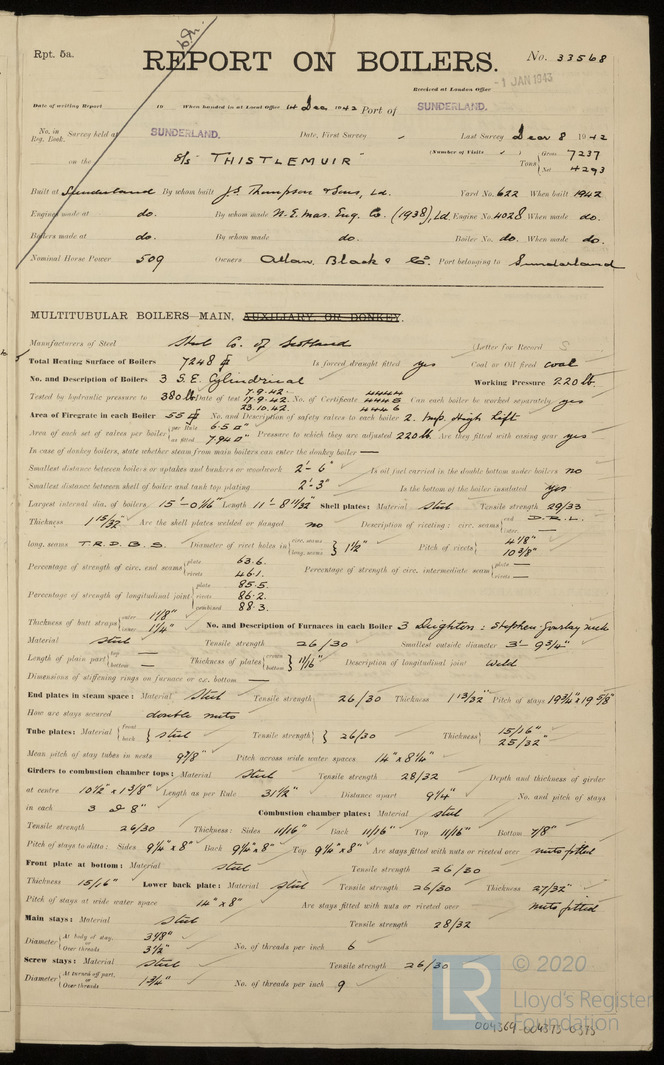 Rpt. 5a.
REPORT ON BOILERS.
No. 33568
Received at London Office
-1 JAN 1943
Date of writing Report 19 When handed in at Local Office 14 Dec 1942 Port of SUNDERLAND.
No. in Reg. Book. Survey held at SUNDERLAND. Date, First Survey Last Survey Decr 8 1942
(Number of Visits )
on the S/S "THISTLEMUIR" Tons { Gross 7237 Net 4293
Built at Sunderland By whom built Js Thompson & Sons, Ld. Yard No. 622 When built 1942
Engines made at do. By whom made N.E. Mar. Eng. Co. (1938), Ld Engine No. 4028 When made do.
Boilers made at do. By whom made do. Boiler No. do. When made do.
Nominal Horse Power 509 Owners Allan, Black & Co. Port belonging to Sunderland
MULTITUBULAR BOILERS—MAIN, AUXILIARY, OR DONKEY.
Manufacturers of Steel Steel Co. of Scotland (Letter for Record S
Total Heating Surface of Boilers 7248 Is forced draught fitted yes Coal or Oil fired coal
No. and Description of Boilers 3 S.E. Cylindrical Working Pressure 220 lb.
Tested by hydraulic pressure to 380 lb Date of test 7.9.42. 17.9.42. 23.10.42. No. of Certificate 4444 4445 4446 Can each boiler be worked separately yes
Area of Firegrate in each Boiler 55 No. and Description of safety valves to each boiler 2. Imp. High Lift
Area of each set of valves per boiler { per Rule 6.50" as fitted 7.940" Pressure to which they are adjusted 220 lb. Are they fitted with easing gear yes
In case of donkey boilers, state whether steam from main boilers can enter the donkey boiler —
Smallest distance between boilers or uptakes and bunkers or woodwork 2'- 6" Is oil fuel carried in the double bottom under boilers no
Smallest distance between shell of boiler and tank top plating 2'- 3" Is the bottom of the boiler insulated yes
Largest internal dia. of boilers 15'-0 1/16" Length 11'-8 11/32" Shell plates: Material steel Tensile strength 29/33
Thickness 1 15/32" Are the shell plates welded or flanged no Description of riveting: circ. seams { end D.R.L. inter. —
long. seams T.R.D.B.S. Diameter of rivet holes in { circ. seams long. seams } 1 1/2" Pitch of rivets { 4 1/8" 10 3/8"
Percentage of strength of circ. end seams { plate 63.6 rivets 46.1. Percentage of strength of circ. intermediate seam { plate — rivets —
Percentage of strength of longitudinal joint { plate 85.5 rivets 86.2 combined 88.3
Thickness of butt straps { outer 1 1/8" inner 1 1/4" No. and Description of Furnaces in each Boiler 3 Deighton: Stephen-Gourlay neck
Material steel Tensile strength 26/30 Smallest outside diameter 3'- 9 3/4"
Length of plain part { top — bottom — Thickness of plates { crown bottom } 11/16" Description of longitudinal joint Weld
Dimensions of stiffening rings on furnace or c.c. bottom —
End plates in steam space: Material Steel Tensile strength 26/30 Thickness 1 13/32" Pitch of stays 19 3/4" x 19 5/8"
How are stays secured double nuts
Tube plates: Material { front back } steel Tensile strength { } 26/30 Thickness { 15/16" 25/32"
Mean pitch of stay tubes in nests 9 7/8" Pitch across wide water spaces 14" x 8 1/4"
Girders to combustion chamber tops: Material Steel Tensile strength 28/32 Depth and thickness of girder
at centre 10 1/2" x 1 3/8" Length as per Rule 31 1/2" Distance apart 9 1/4" No. and pitch of stays
in each 3 @ 8" Combustion chamber plates: Material steel
Tensile strength 26/30 Thickness: Sides 11/16" Back 11/16" Top 11/16" Bottom 7/8"
Pitch of stays to ditto: Sides 9 1/4" x 8" Back 9 1/4" x 8" Top 9 1/4" x 8" Are stays fitted with nuts or riveted over nuts fitted
Front plate at bottom: Material steel Tensile strength 26/30
Thickness 15/16" Lower back plate: Material steel Tensile strength 26/30 Thickness 27/32"
Pitch of stays at wide water space 14" x 8" Are stays fitted with nuts or riveted over nuts fitted
Main stays: Material Steel Tensile strength 28/32
Diameter { At body of stay, or Over threads 3 1/8" 3 1/2" No. of threads per inch 6
Screw stays: Material Steel Tensile strength 26/30
Diameter { At turned off part, or Over threads 1 3/4" No. of threads per inch 9
LR © 2020 Lloyd's Register Foundation
004369-004375-0373